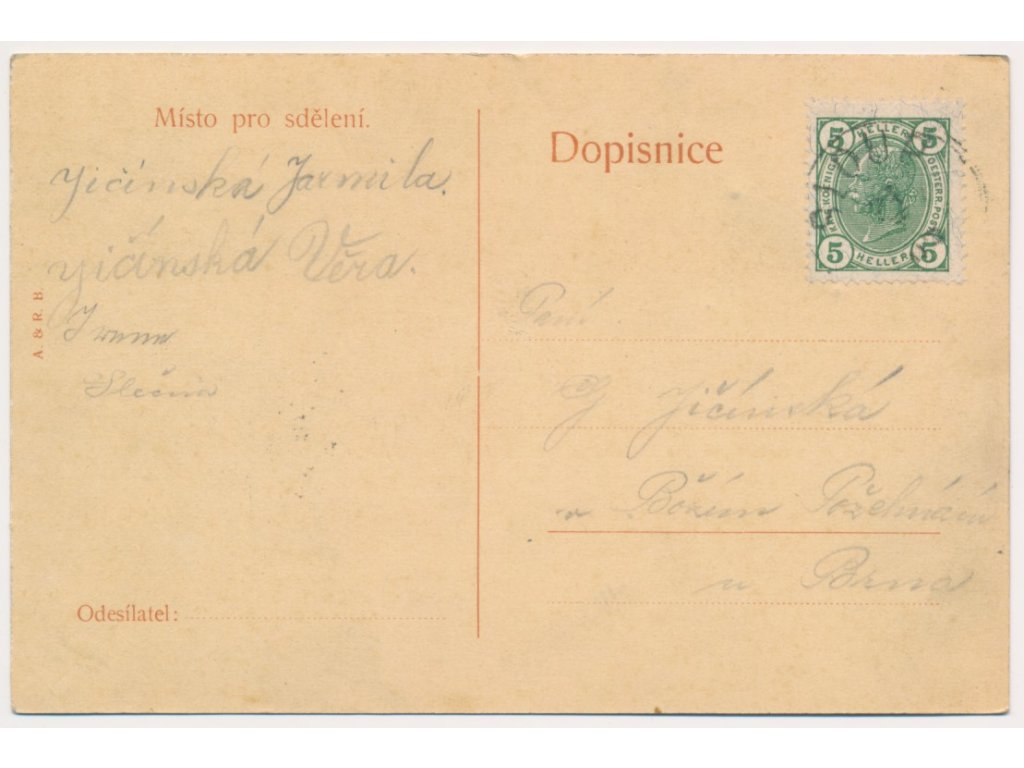 Místo pro sdělení.
Jičínská Jarmila.
Jičínská Věra.
Slečna
A & R. B.
Odesílatel:
Dopisnice
5 HELLER 5
KAIS. KOENIGL. OESTERR. POST
5 HELLER 5
Paní
G Jičínská
v Božím Požehnání
u Brna